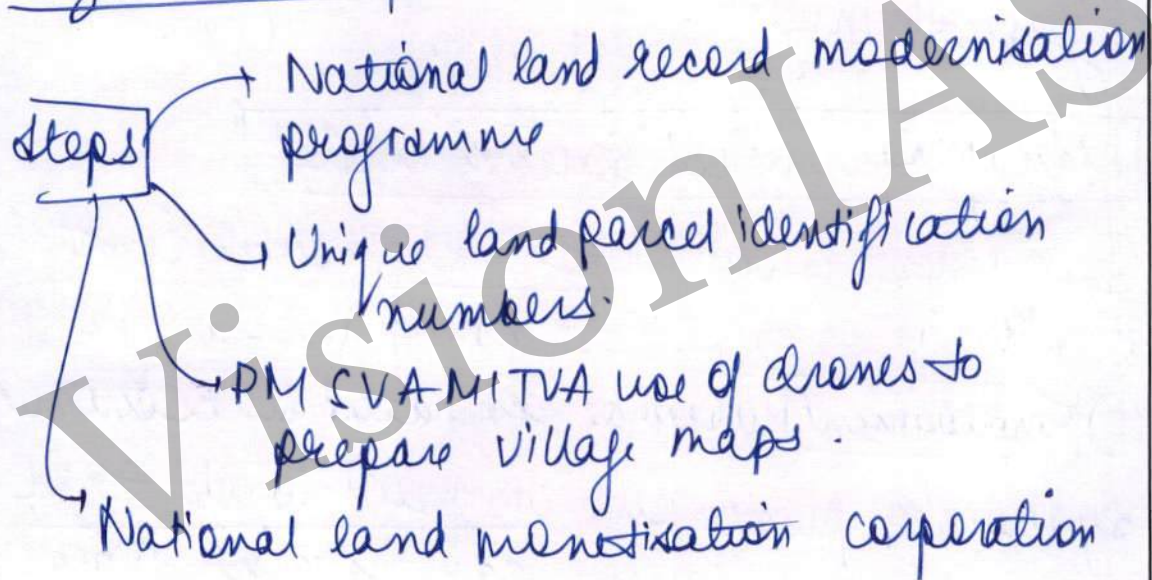 National land record modernisation
Steps
programme
Unique land parcel identification
numbers.
PM SVAMITVA use of drones to
prepare village maps.
National land monetisation corporation
VisionIAS